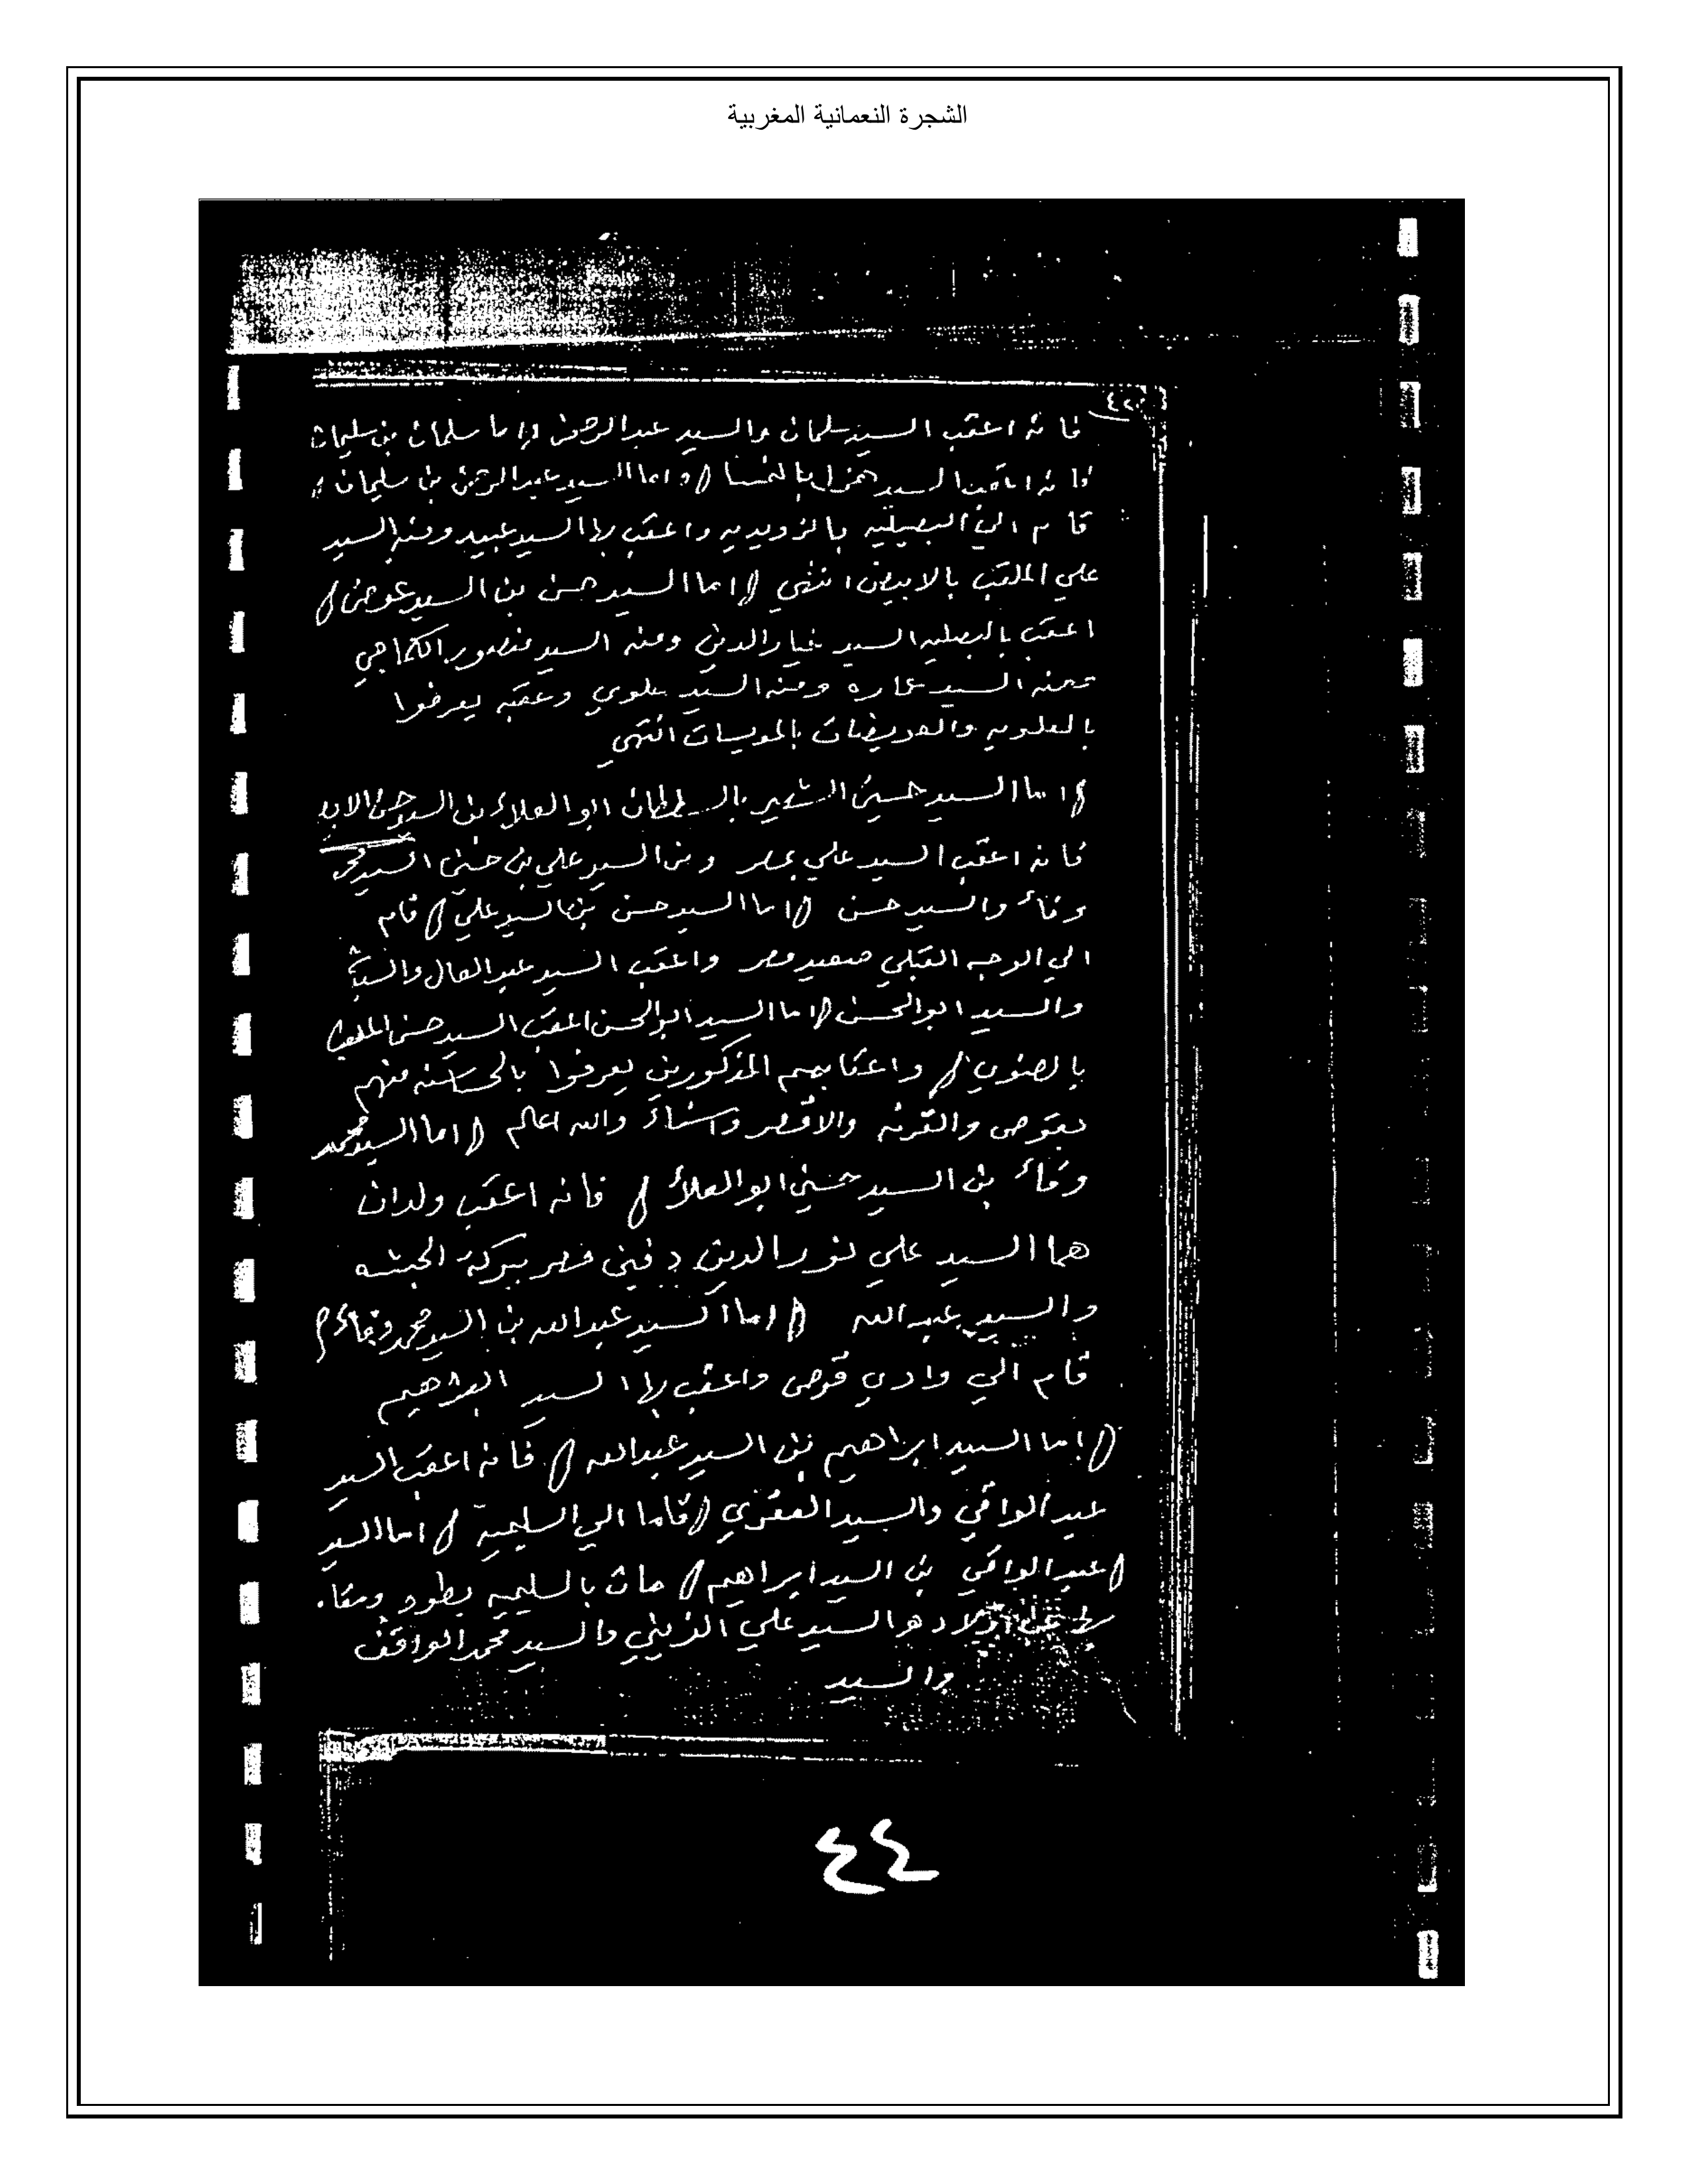 الشجرة النعمانية المغربية
فانه اعقب السيد سلمان والسيد عبدالرحمن واما سلمان بن سليمان
فانه اعقب السيد واما السيد عبدالرحمن بن سليمان
قام الي البصيليه بالزويديه واعقب بها السيد عبيد ومنه السيد
علي الملقب بالابيض انتهي اما السيد حسن بن السيد عوض
اعقب بالبصليه السيد خيار الدين ومنه السيد منصور
ومنه السيد عماره ومنه السيد علوي وعقبه يعرفوا
بالعلويه والعريضات انتهي
اما السيد حسين الشهير بالسلطان ابو العلاء بن السيد
فانه اعقب السيد علي بمصر ومن السيد علي بن حسن السيد محمد
وفاء والسيد حسن اما السيد حسن بن السيد علي قام
الي الوجه القبلي صعيد مصر واعقب السيد عبد العال
والسيد ابوالحسن اما السيد ابوالحسن اعقب السيد حسن الملقب
بالصنوي واعقابهم المذكورين يعرفوا بالحساسنه منهم
بقوص والقرنه والاقصر واسناء والله اعالم اما السيد محمد
وفاء بن السيد حسين ابو العلاء فانه اعقب ولدان
هما السيد علي نور الدين دفين مصر ببركة الحبشه
والسيد عبدالله اما السيد عبدالله بن السيد محمد وفاء
قام الي وادي قوص واعقب بها السيد ابراهيم
اما السيد ابراهيم بن السيد عبدالله فانه اعقب السيد
عبد الواقي والسيد قاما الي السليميه اما السيد
عبد الواقي بن السيد ابراهيم مات بالسليميه
اولاد هم السيد علي الزيني والسيد محمد الواقف
والسيد
٤٤